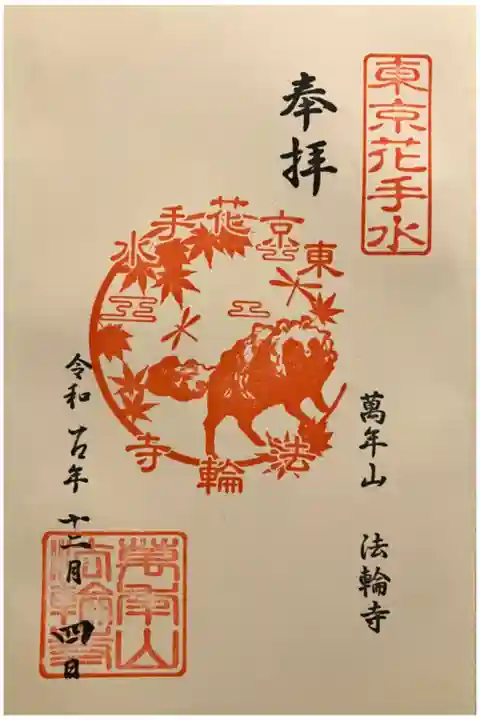 東京花手水
奉拝
東京花手水
法輪寺
萬年山 法輪寺
令和五年十二月四日
萬年山
法輪寺